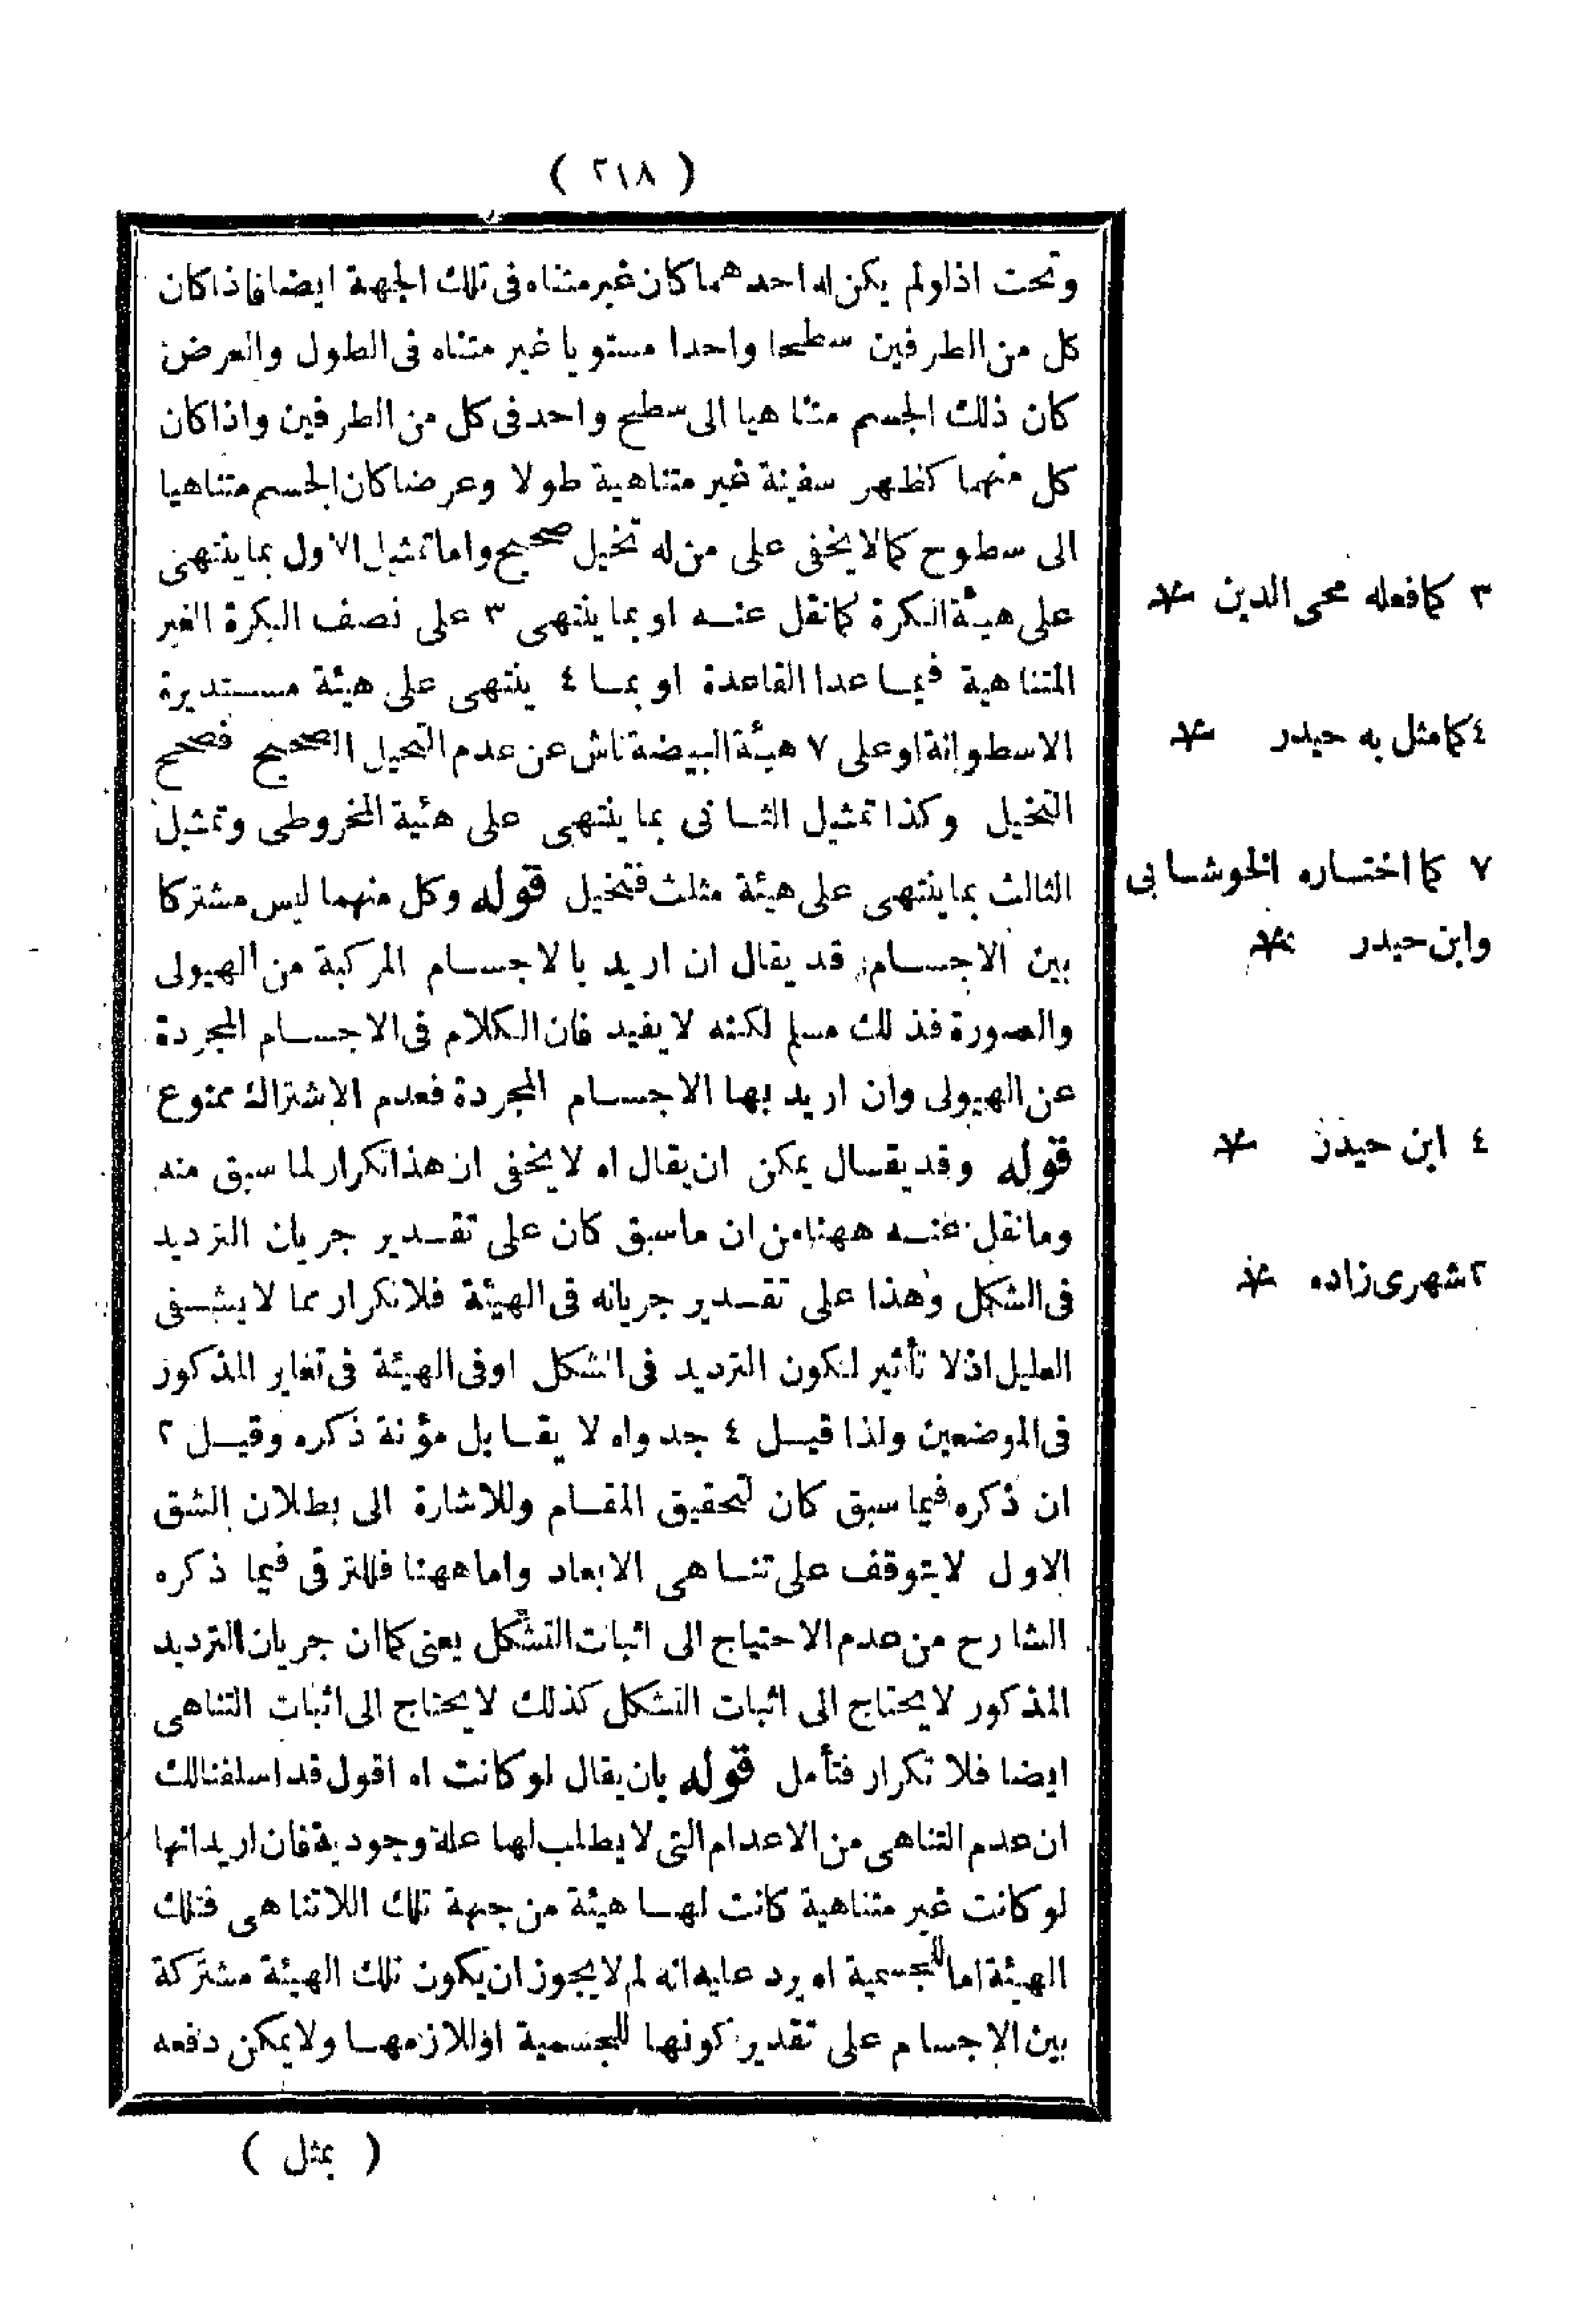 ( ٢١٨ )
وتحت اذ لولم يكن له احدهما كان غير متناه فى تلك الجهة ايضا فاذا كان
كل من الطرفين سطحا واحدا مستويا غير متناه فى الطول والعرض
كان ذلك الجسم متناهيا الى سطح واحد فى كل من الطرفين واذا كان
كل منهما كظهر سفينة غير متناهية طولا وعرضا كان الجسم متناهيا
الى سطوح كما لا يخفى على من له تخيل صحيح واما تمثيل الاول بما ينتهى
على هيئة الكرة كما نقل عنه او بما ينتهى ٣ على نصف البكرة الغير
المتناهية فيما عدا القاعدة او بما ٤ ينتهى على هيئة مستديرة
الاسطوانة او على ٧ هيئة البيضة ناش عن عدم التخيل الصحيح فصحح
التخيل وكذا تمثيل الثانى بما ينتهى على هئية المخروطى وتمثيل
الثالث بما ينتهى على هيئة مثلث فتخيل قوله وكل منهما ليس مشتركا
بين الاجسام قد يقال ان اريد بالاجسام المركبة من الهيولى
والصورة فذلك مسلم لكنه لا يفيد فان الكلام فى الاجسام المجردة
عن الهيولى وان اريد بها الاجسام المجردة فعدم الاشتراك ممنوع
قوله وقد يقال يمكن ان يقال اه لا يخفى ان هذا تكرار لما سبق منه
وما نقل عنه ههنا من ان ما سبق كان على تقدير جريان الترديد
فى الشكل وهذا على تقدير جريانه فى الهيئة فلا تكرار مما لا يشفى
العليل اذ لا تأثير لكون الترديد فى الشكل او فى الهيئة فى تغاير المذكور
فى الموضعين ولذا قيل ٤ جدواه لا يقابل مؤنة ذكره وقيل ٢
ان ذكره فيما سبق كان لتحقيق المقام وللاشارة الى بطلان الشق
الاول لا يتوقف على تناهى الابعاد واما ههنا فللترقى فيما ذكره
الشارح من عدم الاحتياج الى اثبات التشكل يعنى كما ان جريان الترديد
المذكور لا يحتاج الى اثبات التشكل كذلك لا يحتاج الى اثبات التناهى
ايضا فلا تكرار فتأمل قوله بان يقال لو كانت اه اقول قد اسلفنا لك
ان عدم التناهى من الاعدام التى لا يطلب لها علة وجودية فان اريد انها
لو كانت غير متناهية كانت لها هيئة من جهة تلك اللاتناهى فتلك
الهيئة اما للجسمية اه يرد عليه انه لم لا يجوز ان يكون تلك الهيئة مشتركة
بين الاجسام على تقدير كونها للجسمية او للازمها ولا يمكن دفعه
( بمثل )
٣ كما فعله محى الدين
٤ كما مثل به حيدر
٧ كما اختساره الخوشابى
وابن حيدر
٤ ابن حيدر
٢ شهرى زاده